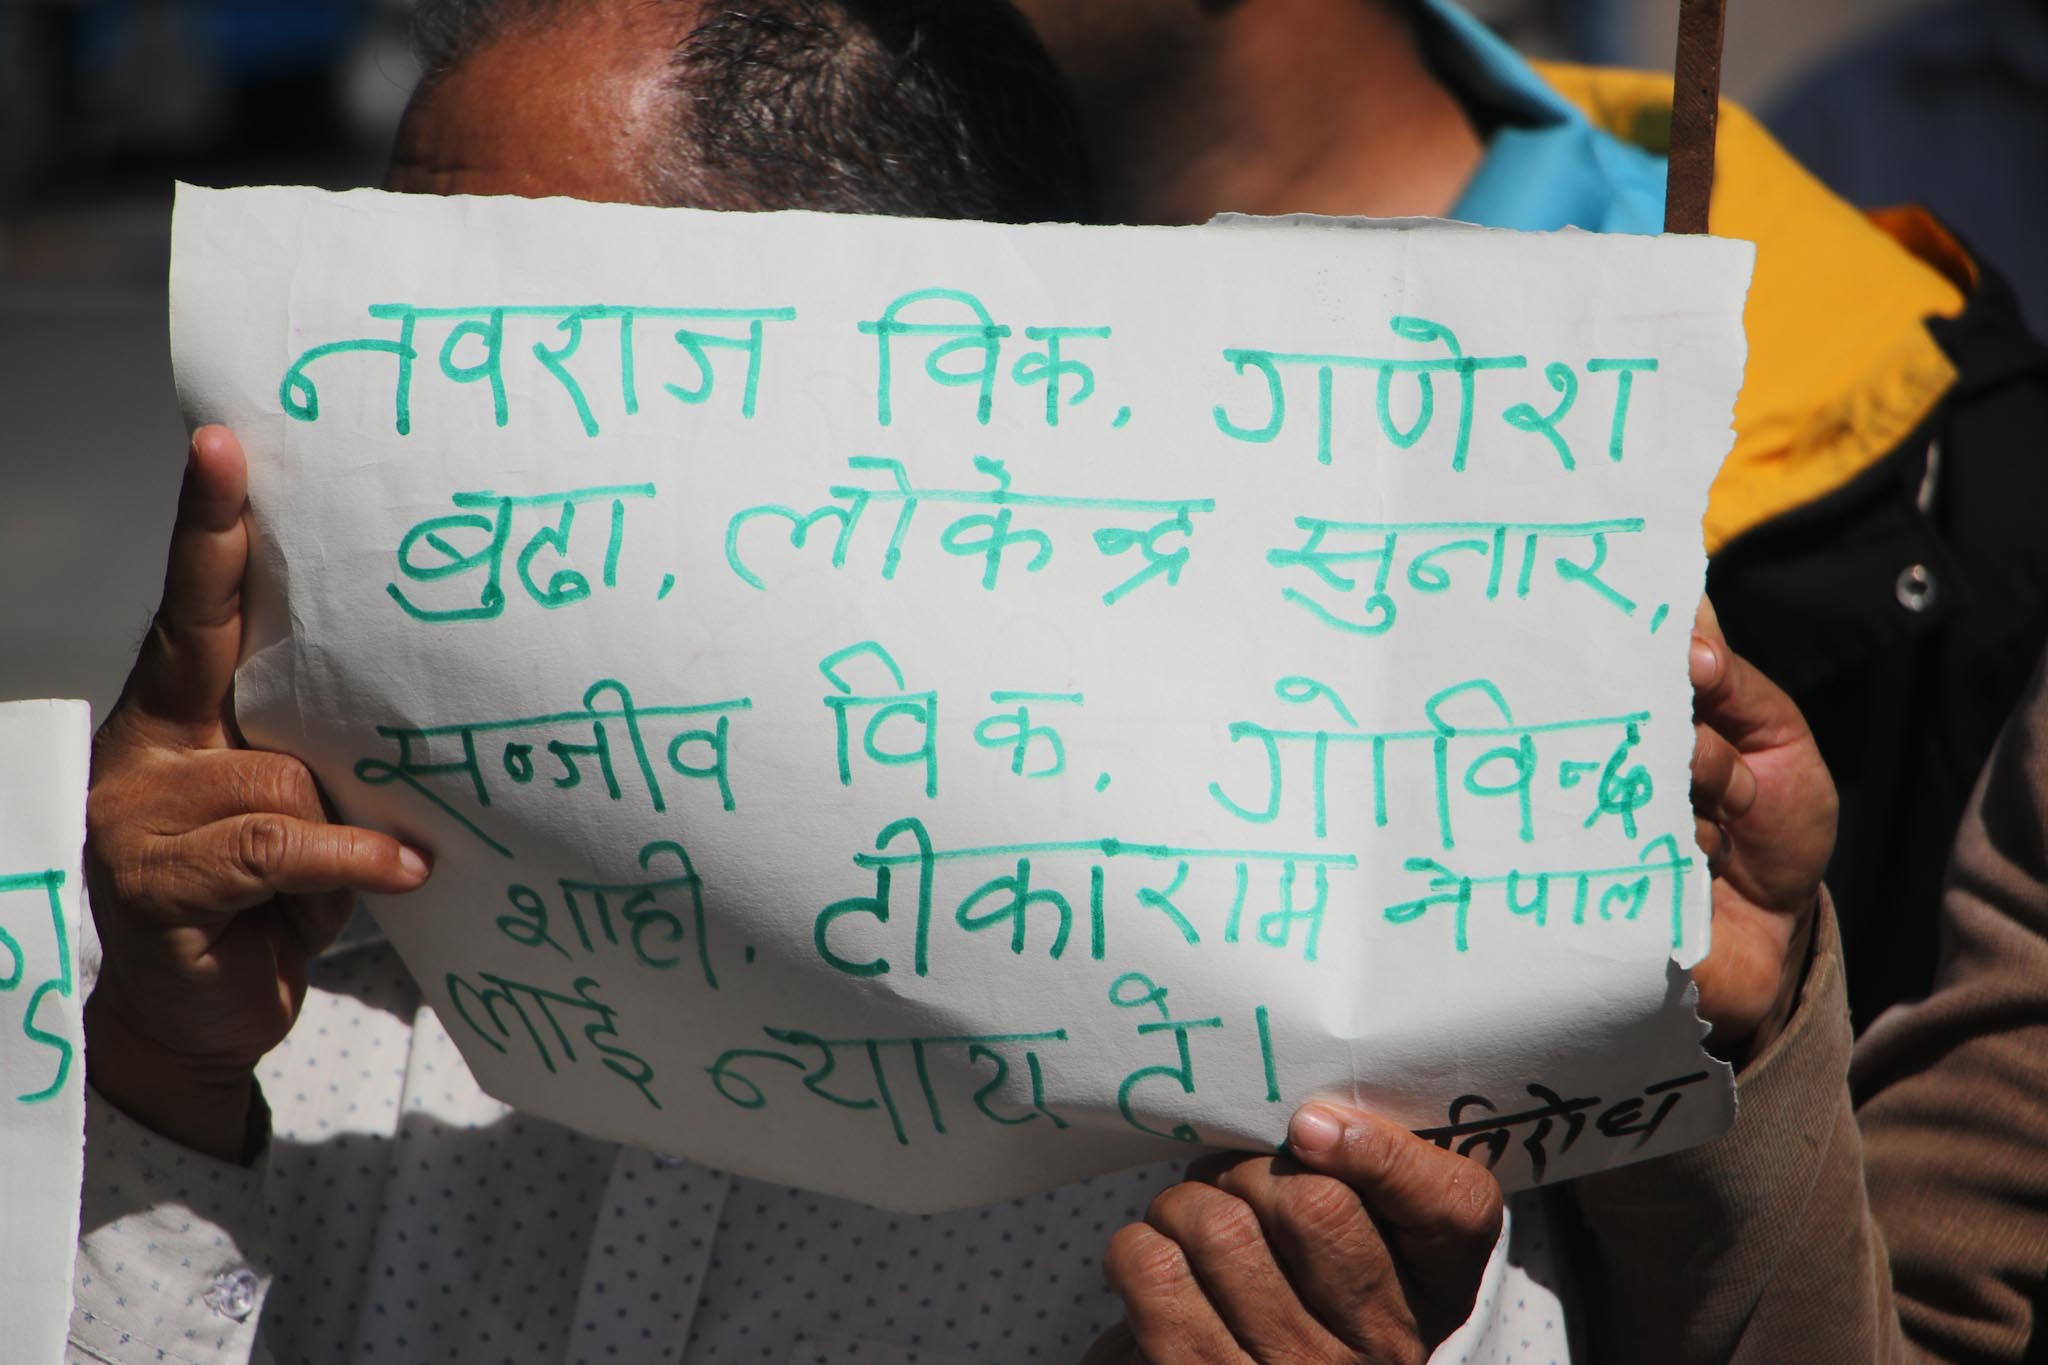 नवराज विक, गणेश
बुढा, लोकेन्द्र सुनार,
सन्जीव विक, गोविन्द्र
शाही, टीकाराम नेपाली
लाई न्याय दे।